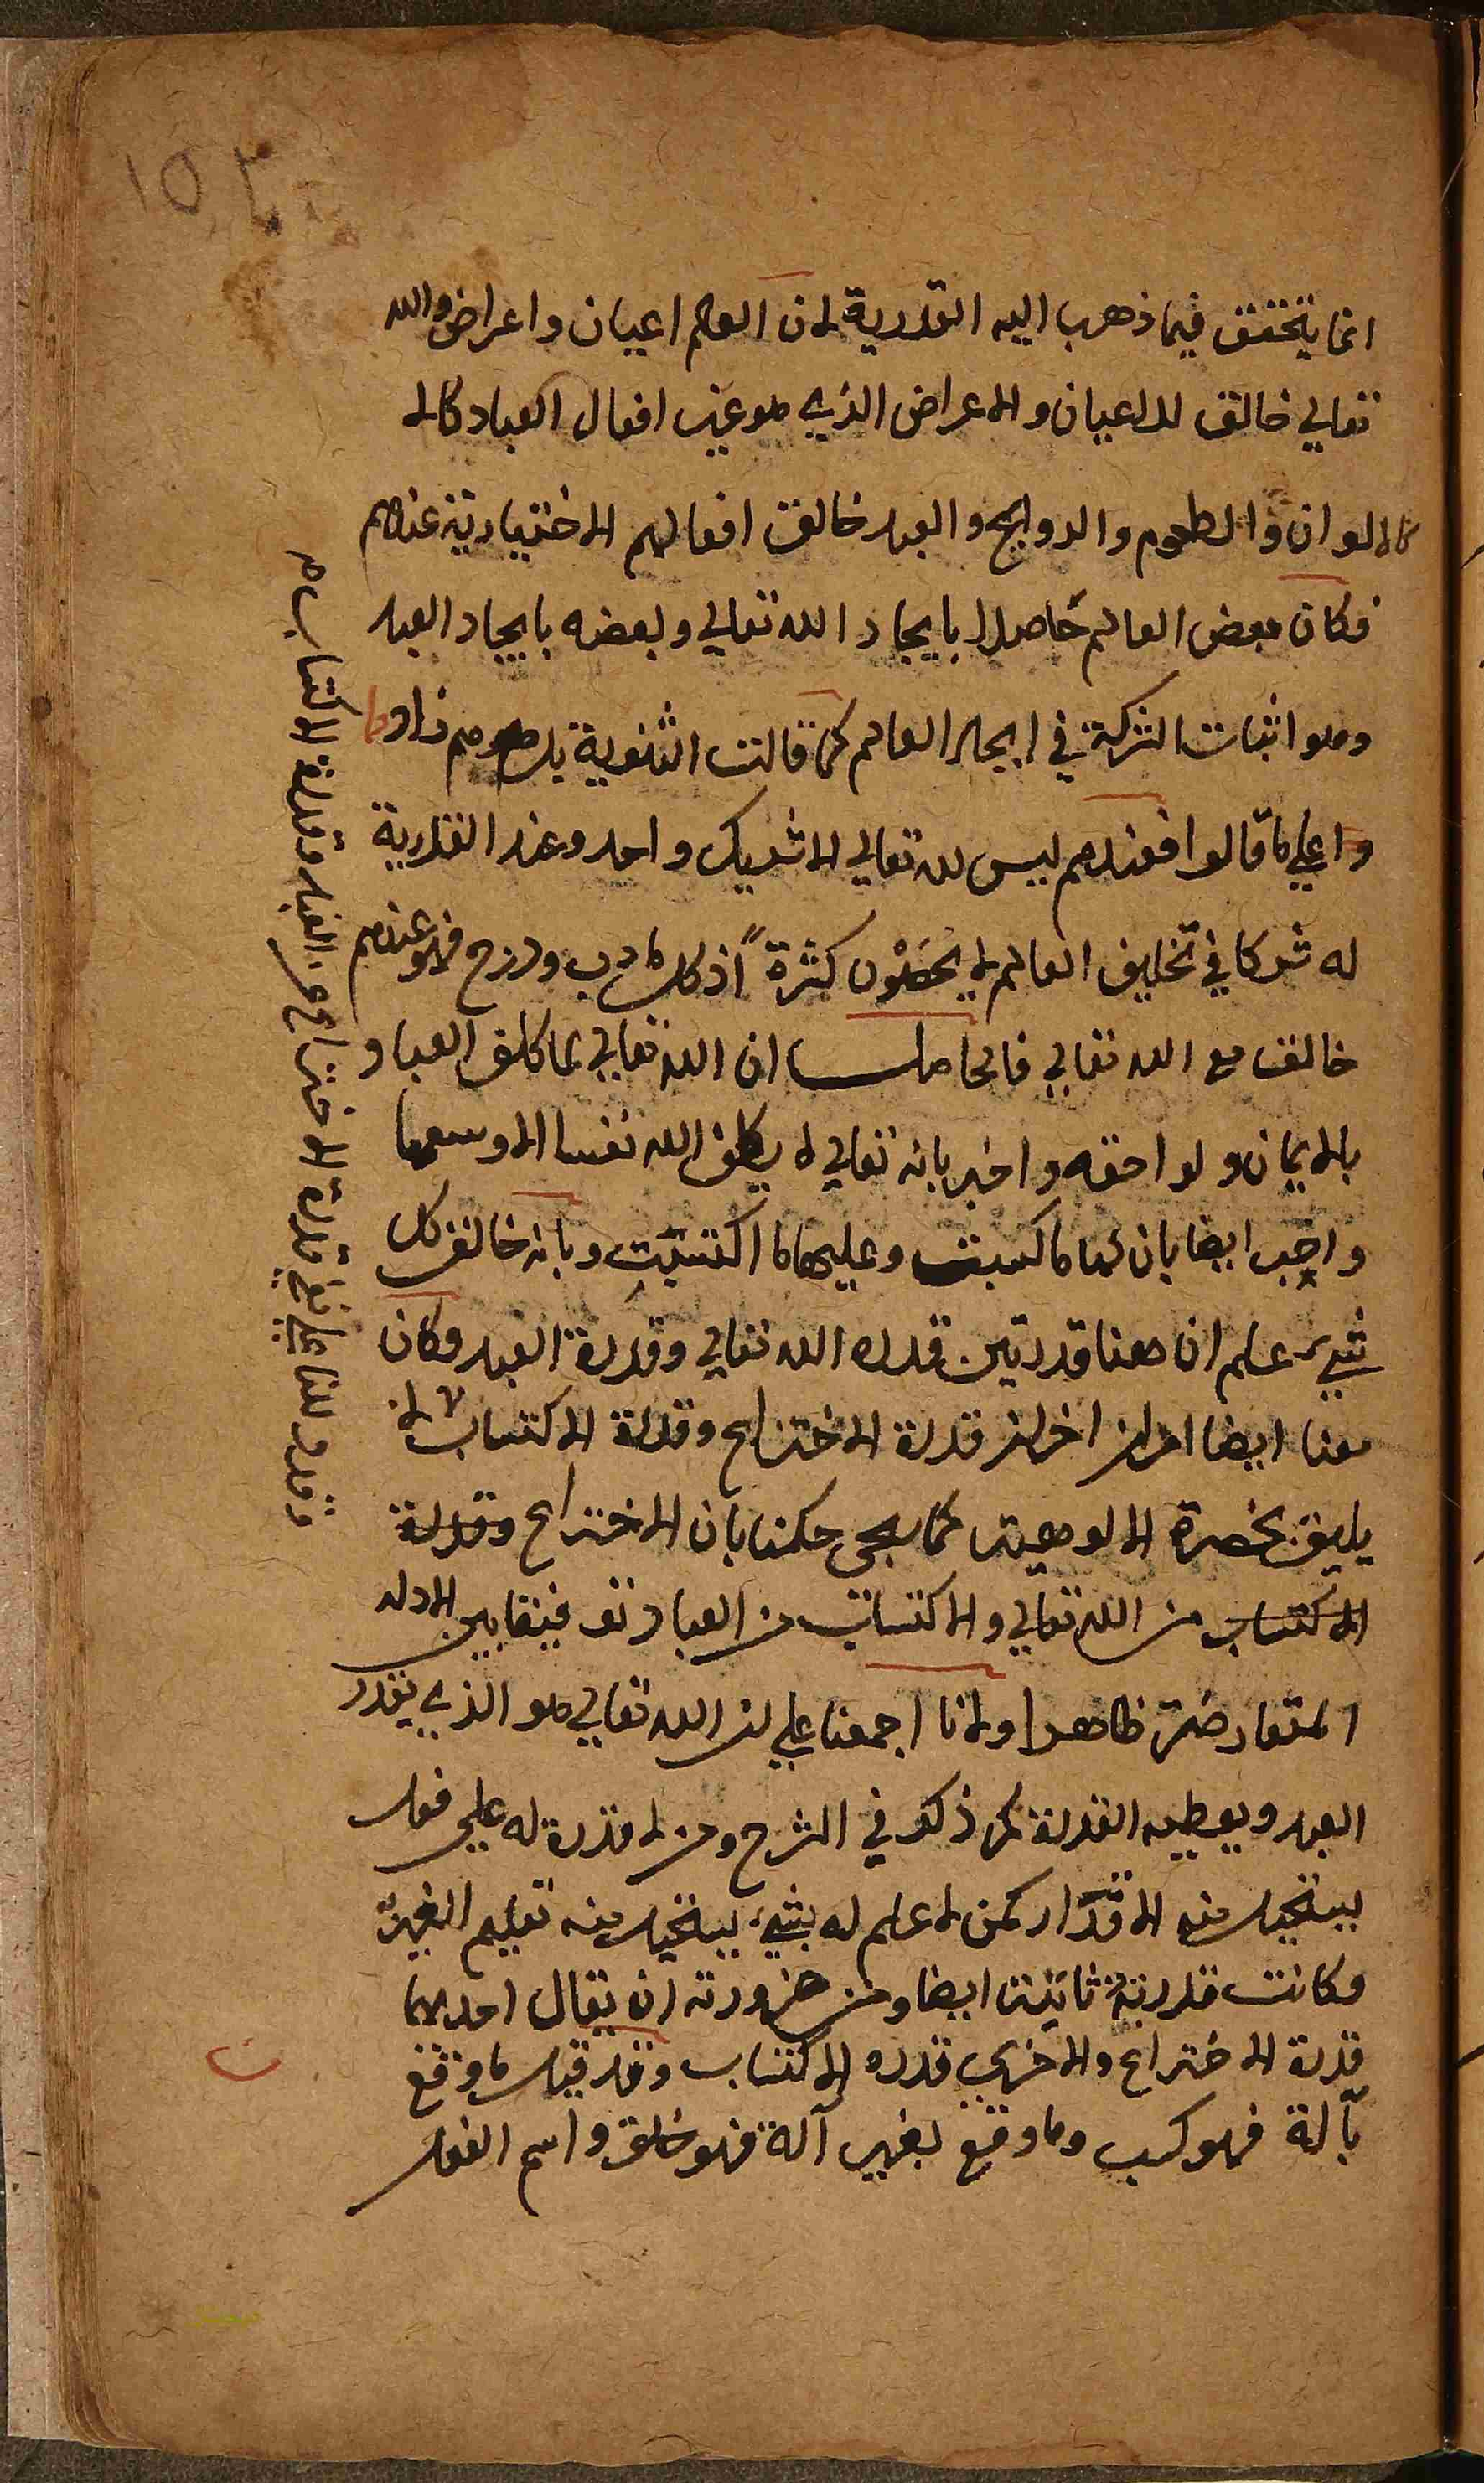 انما يتحقق فيما ذهب اليه القدرية لان العالم اعيان واعراض والله
تعالي خالق للاعيان والاعراض الذي هو غير افعال العباد كالا
كالالوان والطعوم والروايح والعبد خالق افعالهم الاختيارية عندهم
فكان بعض العالم حاصلا بايجاد الله تعالي وبعضه بايجاد العبد
وهو اثبات الشركة في ايجاد العالم كما قالت الثنوية بل هم زادوا
واعلي ما قالوا فعندهم ليس لله تعالي الا شريك واحد وعند القدرية
له شركا في تخليق العالم لا يحصون كثرة اذ كل ما دب ودرج فهو عندهم
خالق مع الله تعالي فالحاصل ان الله تعالي لما كلف العباد
بالايمان ولواحقه واخبر بانه تعالي لا يكلف الله نفسا الا وسعها
واخبر ايضا بان لها ما كسبت وعليها ما اكتسبت وبانه خالق كل
شيء علم ان هنا قدرتين قدره الله تعالي وقدرة العبد وكان
هنا ايضا امران اخران قدرة الاختراع وقدرة الاكتساب لا
يليق بحضرة الالوهية كما سيجى حكمنا بان الاختراع وقدرة
الاكتساب من الله تعالي والاكتساب من العباد توفيقا بين الادله
المتعارضة ظاهرا ولانا اجمعنا علي ان الله تعالي هو الذي يقدر
العبد ويعطيه القدرة كما ذكر في الشرح ومن لا قدرة له علي فعل
يستحيل منه الاقدار كمن لا علم له بشيء يستحيل منه تعليم الغير
وكانت قدرته ثابتة ايضا ومن ضرورته ان يقال احديهما
قدرة الاختراع والاخري قدره الاكتساب وقد قيل ما وقع
بآلة فهو كسب وما وقع بغير آلة فهو خلق واسم الفعل
وقدرة الاختراع عن العبد وقدرة الاكتساب
١٥